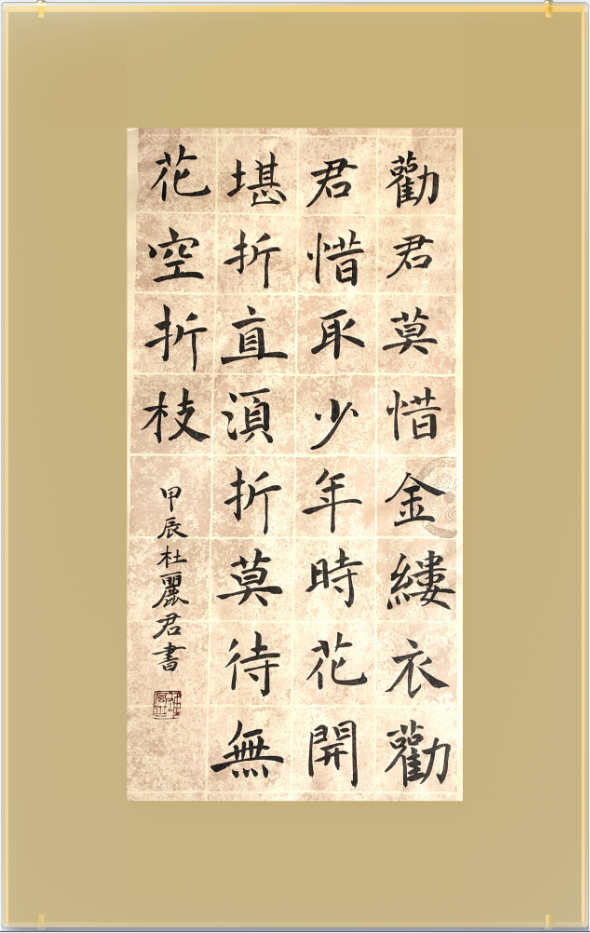 勸君莫惜金縷衣勸
君惜取少年時花開
堪折直須折莫待無
花空折枝
甲辰杜麗君書